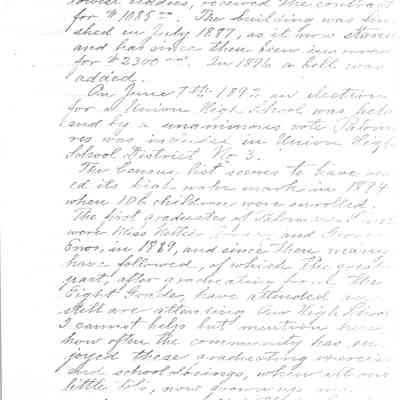 lowest bidders, received the contract
for $1085.00. The building was fin
shed in July 1887, as it now stand
and has since then been insured
for $2300.00. In 1896 a bell was
added.
On June 7th 1892 an election
for a Union High School was held
and by a unanimous vote Paloma
res was included in Union High
School District No 3.
The Census list seems to have
ed its high water mark in 1894
when 106 children were enrolled.
The first graduates at Palomares
were Miss Nettie and George
Enos, in 1889, and since then many
have followed, of which the great
part, after graduating from the
Eight Grade, have attended
still are attending our High School
I cannot help but mention here
how often the community has en
joyed these graduating exercis
and school closings, when all our
little tots, now grown up